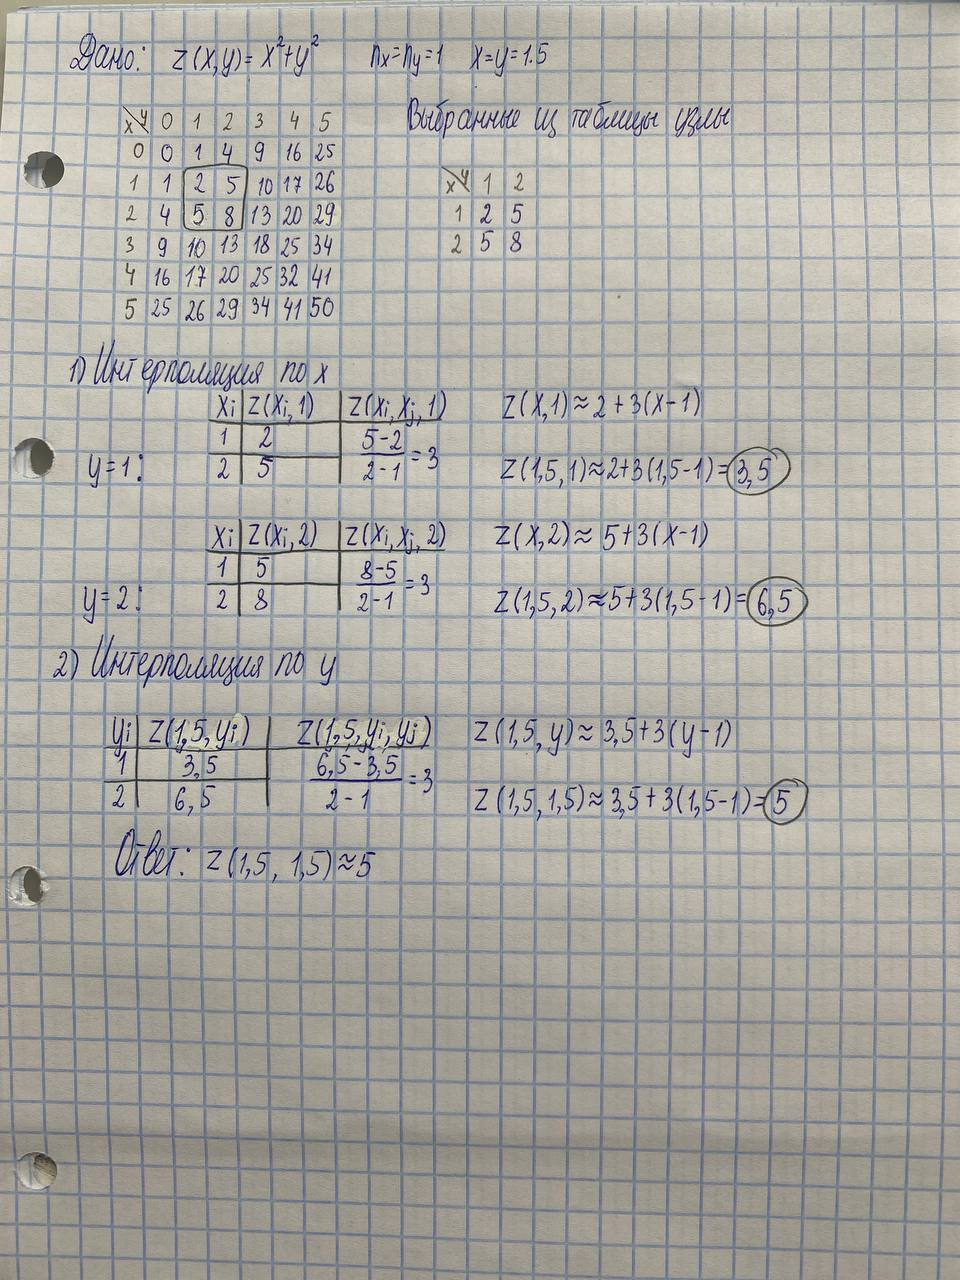 Дано: z(x,y)=x²+y² nx=ny=1 x=y=1.5
Выбранные из таблицы узлы
x\y 0 1 2 3 4 5
0 0 1 4 9 16 25
1 1 2 5 10 17 26
2 4 5 8 13 20 29
3 9 10 13 18 25 34
4 16 17 20 25 32 41
5 25 26 29 34 41 50
x\y 1 2
1 2 5
2 5 8
1) Интерполяция по x
y=1:
xi z(xi,1) z(xi,xj,1)
1 2 (5-2)/(2-1)=3
2 5
z(x,1)≈2+3(x-1)
z(1,5,1)≈2+3(1,5-1)=3,5
y=2:
xi z(xi,2) z(xi,xj,2)
1 5 (8-5)/(2-1)=3
2 8
z(x,2)≈5+3(x-1)
z(1,5,2)≈5+3(1,5-1)=6,5
2) Интерполяция по y
yi z(1,5,yi) z(1,5,yi,yj)
1 3,5 (6,5-3,5)/(2-1)=3
2 6,5
z(1,5,y)≈3,5+3(y-1)
z(1,5,1,5)≈3,5+3(1,5-1)=5
Ответ: z(1,5, 1,5)≈5